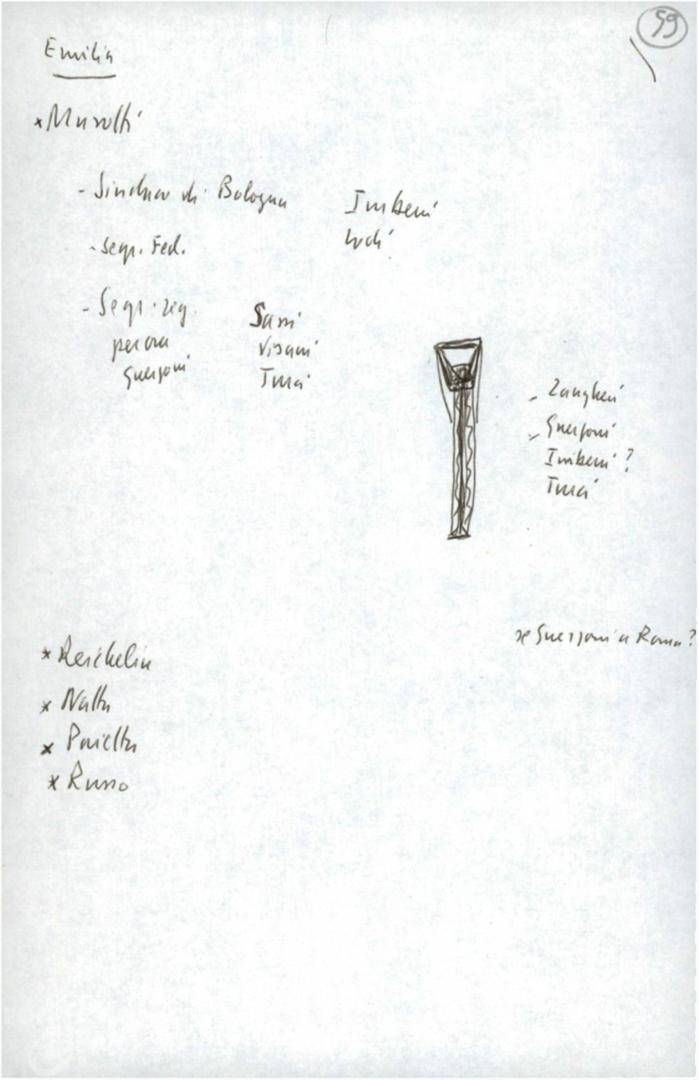 59
Emilia
* Musolli
- Sindaco di Bologna Imbeni
- Segr. Fed.
- Segr. reg. Sassi
per ora Visani
Guerzoni Turci
- Zangheri
- Guerzoni
Imbeni?
Turci
se Guerzoni a Roma?
* Reichelin
* Natta
* Paietta
* Russo